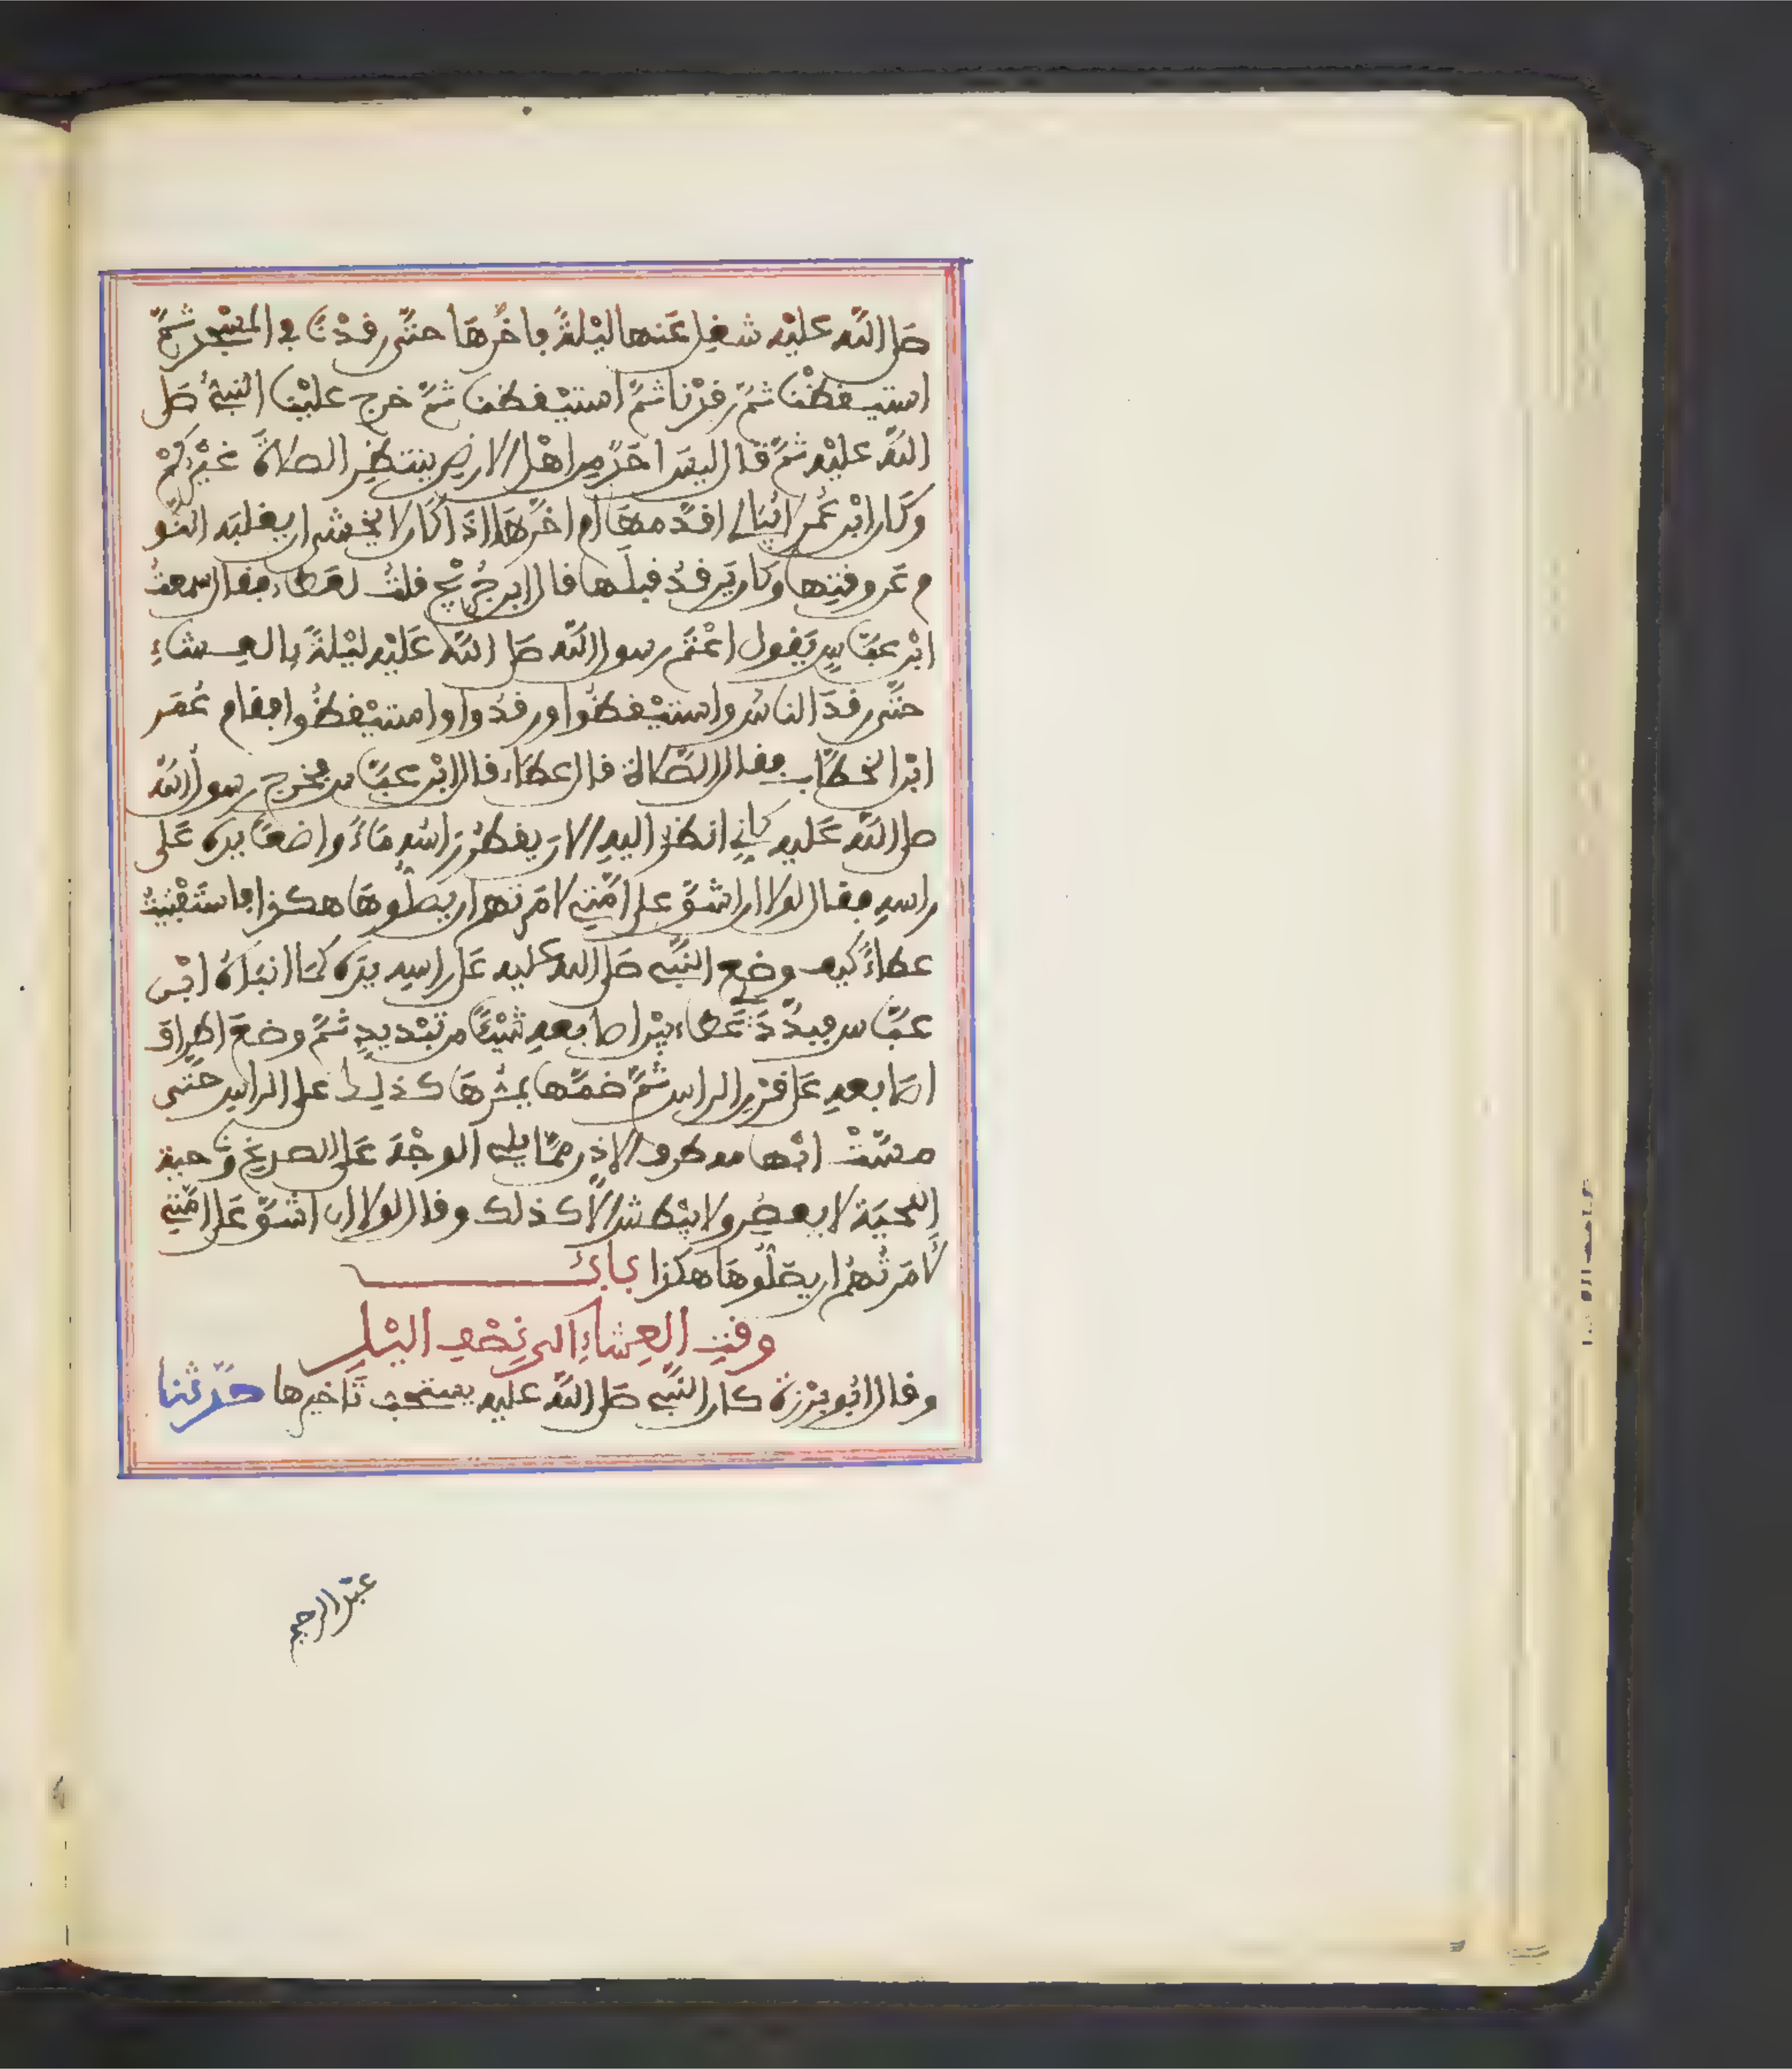 صلى الله عليه شغل عنها ليلةً فاخَّرها حتّى رقدْنا في المسْجد ثمَّ
استيقظْنا ثمَّ رقدْنا ثمَّ استيْقظنا ثمَّ خرج عليْنا النبيُّ صلى
اللهُ عليْه ثمَّ قال ليسَ احَدٌ من اهْل الارضِ ينتظِر الصلاةَ غيْركُمْ
وكَان ابْن عُمر لا يُبَالي اقدَّمهَا أم اخَّرهَا اذَا كَان لا يخْشى ان يغلبَه النَّو
م عَن وقتِها وكان يَرقُدُ قبلَها قال ابن جُريْج قلتُ لعَطاء فقال سمعتُ
ابْن عبَّاسٍ يَقول اعْتَم رسول الله صلى اللهُ عَليْه ليْلةً بالعِشَاءِ
حتَّى رقدَ الناسُ واستيْقظُوا ورقدُوا واستيْقظُوا فقام عُمَر
ابْن الخطَّاب فقال الصَّلاة قال عطَاء قال ابْن عبَّاس فخرج رسول الله
صلى اللهُ عَليه كأني انظرُ اليهِ الان يقطُر رَاسُه مَاءً واضعًا يدَه عَلى
راسهِ فقال لولا ان اشقَّ على امَّتي لامَرتهم ان يصَلُّوهَا هكذا فاستَثْبَتُّ
عطاءً كيف وضع النَّبي صَلى الله عليه عَلى راسهِ يدَه كمَا انبَاهُ ابْن
عبَّاس فبدَّدَ لي عَطاء بيْن اصابعهِ شيْئًا من تبْديدٍ ثمَّ وضعَ اطراف
اصَابعهِ عَلى قرْن الراس ثمَّ ضمَّها يمُرُّهَا كذلك على الراس حتَّى
مسّتْ ابْهامه طرف الاذن ممَّا يلي الوجْهَ عَلى الصدغ ونَاحية
اللحيَة لا يعصُر ولا يبْطش الَّا كذلك وقال لولا ان اشقَّ عَلى امَّتي
لأمَرتُهمْ ان يصَلُّوهَا هكذا بَابُ
وقتِ العِشاءِ الى نِصْفِ اليْلِ
وقال ابُو بَرْزة كان النَّبي صَلى اللهُ عليه يستحب تَاخيرها حدّثنا
عبد الرحيم